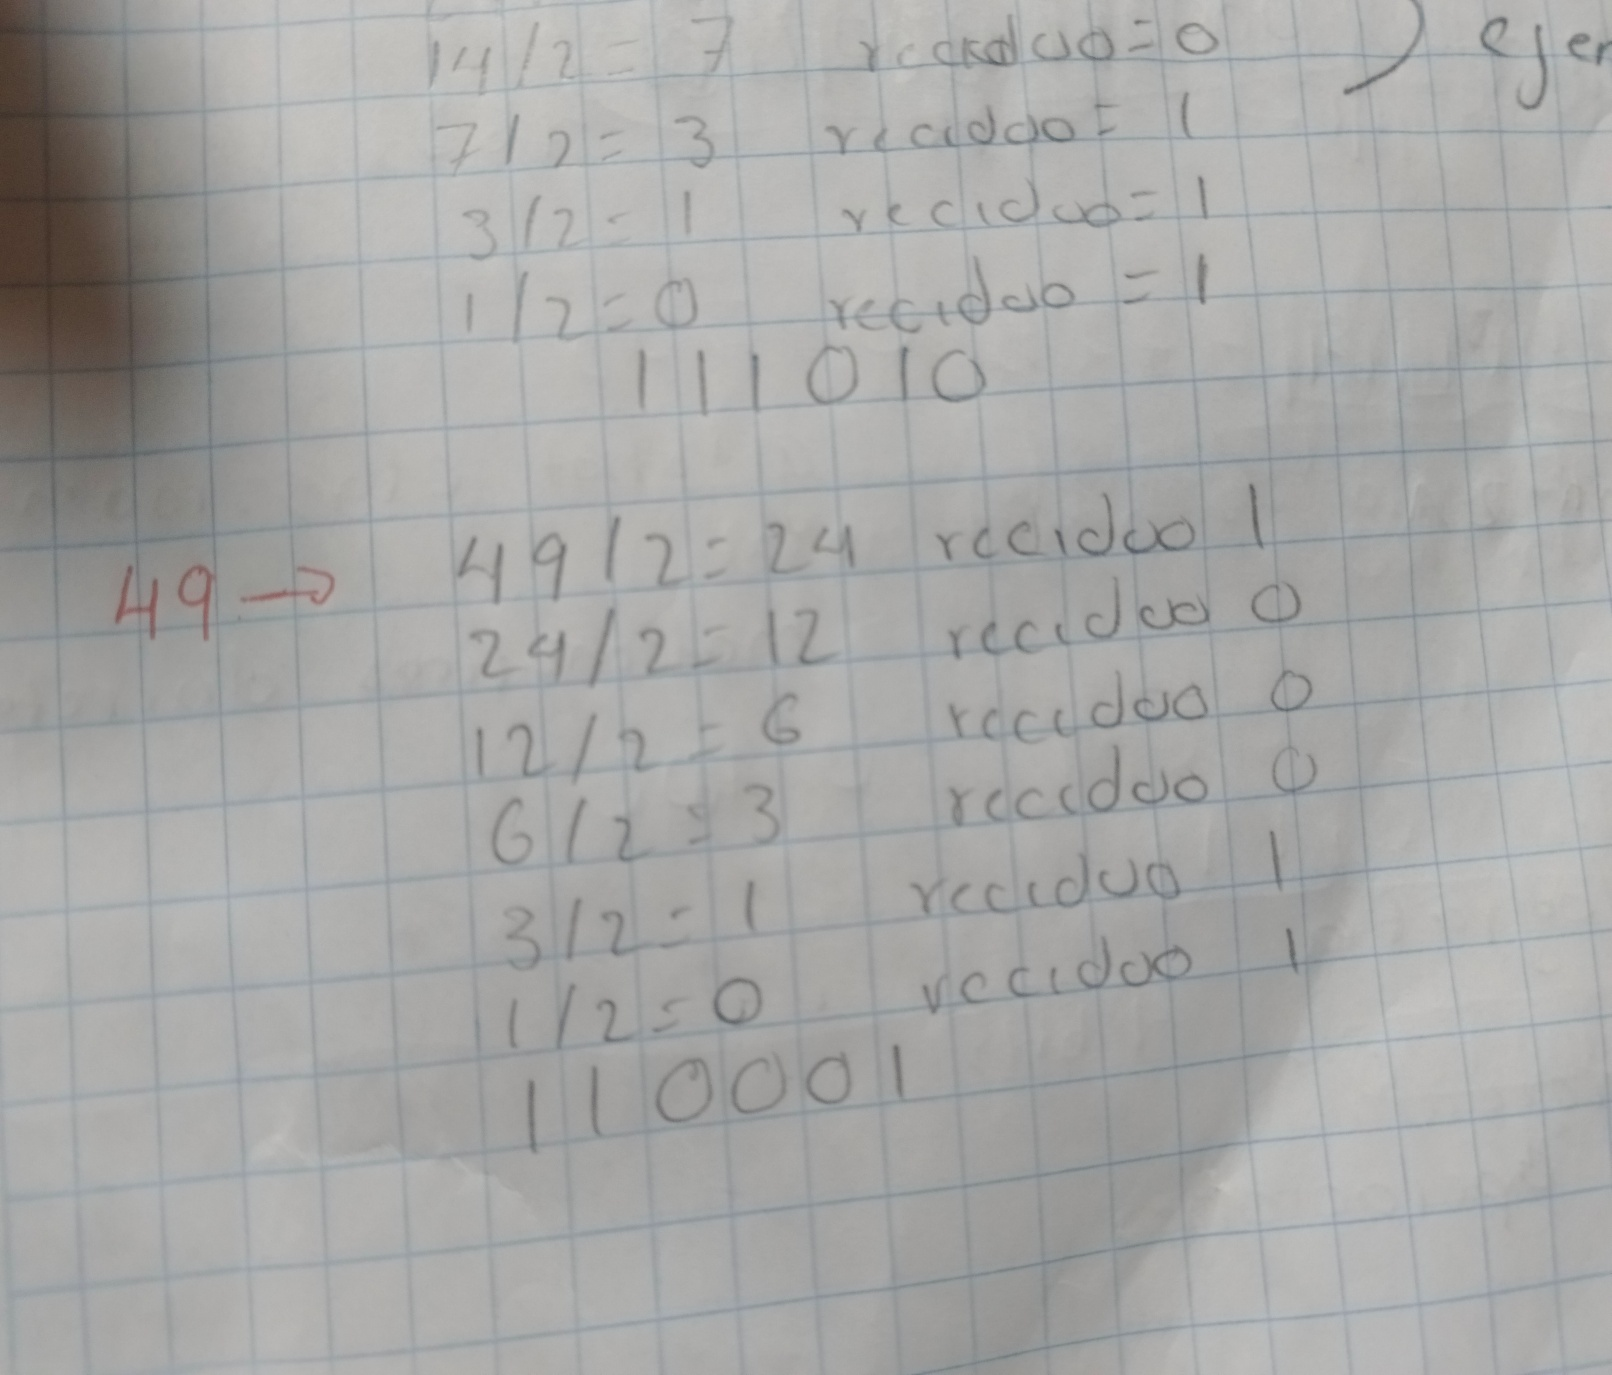 14/2=7 reciduo=0 ) ejer
7/2=3 reciduo=1
3/2=1 reciduo=1
1/2=0 reciduo=1
111010
49→ 49/2=24 reciduo 1
24/2=12 reciduo 0
12/2=6 reciduo 0
6/2=3 reciduo 0
3/2=1 reciduo 1
1/2=0 reciduo 1
110001